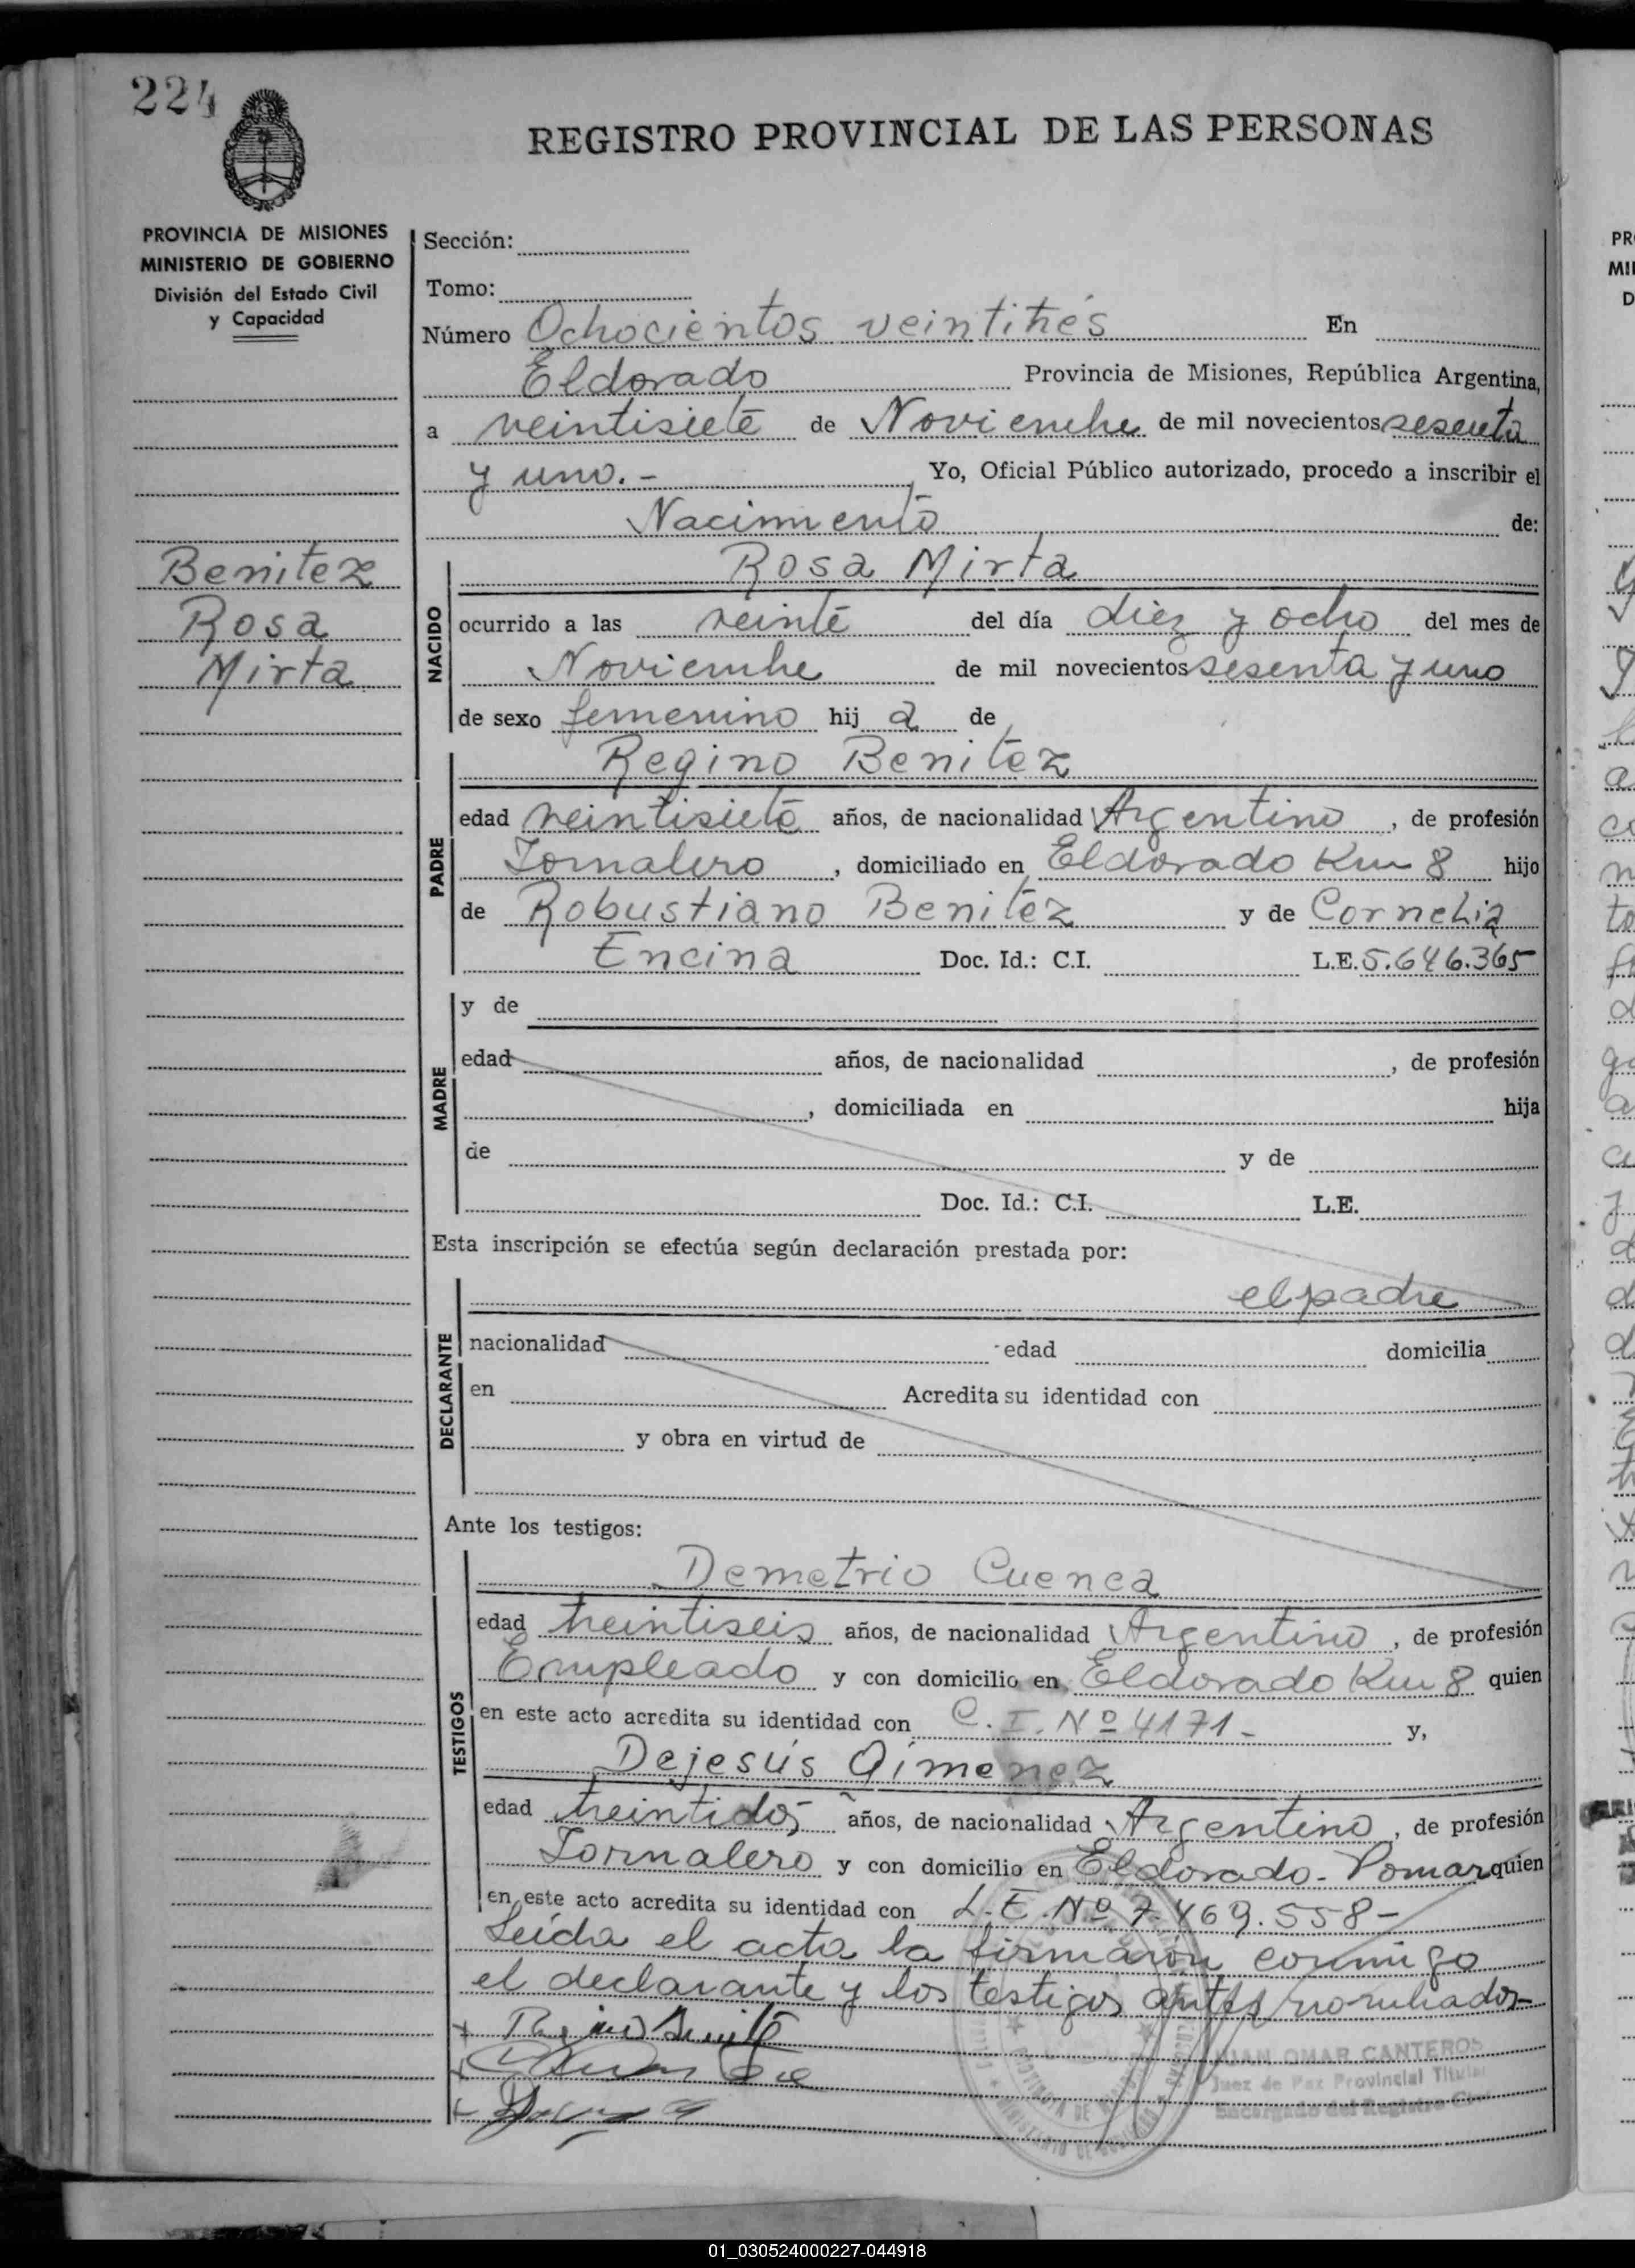 224
REGISTRO PROVINCIAL DE LAS PERSONAS
PROVINCIA DE MISIONES
MINISTERIO DE GOBIERNO
División del Estado Civil
y Capacidad
Benitez
Rosa
Mirta
Sección:
Tomo:
Número Ochocientos veintitrés En
Eldorado Provincia de Misiones, República Argentina,
a veintisiete de Noviembre de mil novecientos sesenta
y uno.- Yo, Oficial Público autorizado, procedo a inscribir el
Nacimiento de:
NACIDO
Rosa Mirta
ocurrido a las veinte del día diez y ocho del mes de
Noviembre de mil novecientos sesenta y uno
de sexo femenino hij a de
PADRE
Regino Benitez
edad veintisiete años, de nacionalidad Argentino, de profesión
Jornalero, domiciliado en Eldorado Km 8 hijo
de Robustiano Benitez y de Cornelia
Encina Doc. Id.: C.I. L.E. 5.646.365
MADRE
y de
edad años, de nacionalidad , de profesión
, domiciliada en hija
de y de
Doc. Id.: C.I. L.E.
Esta inscripción se efectúa según declaración prestada por:
DECLARANTE
el padre
nacionalidad edad domicilia
en Acredita su identidad con
y obra en virtud de
Ante los testigos:
TESTIGOS
Demetrio Cuenca
edad treintiseis años, de nacionalidad Argentino, de profesión
Empleado y con domicilio en Eldorado Km 8 quien
en este acto acredita su identidad con C.I. Nº 4171- y,
Dejesús Gimenez
edad treintidos años, de nacionalidad Argentino, de profesión
Jornalero y con domicilio en Eldorado-Pomar quien
en este acto acredita su identidad con L.E. Nº 7.469.558-
Leída el acta la firmaron conmigo
el declarante y los testigos antes nombrados-
Regino Benitez
JUAN OMAR CANTEROS
Juez de Paz Provincial Titular
Encargado del Registro Civil
01_030524000227-044918